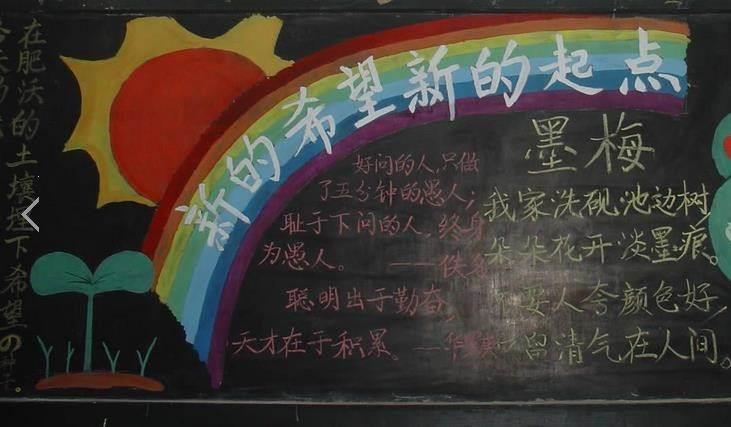 新的希望新的起点
在肥沃的土壤埋下希望の种子。
好问的人,只做
了五分钟的愚人;
耻于下问的人,终身
为愚人。——佚名
聪明出于勤奋,
天才在于积累。——华
墨梅
我家洗砚池边树,
朵朵花开淡墨痕。
不要人夸颜色好,
留清气在人间。